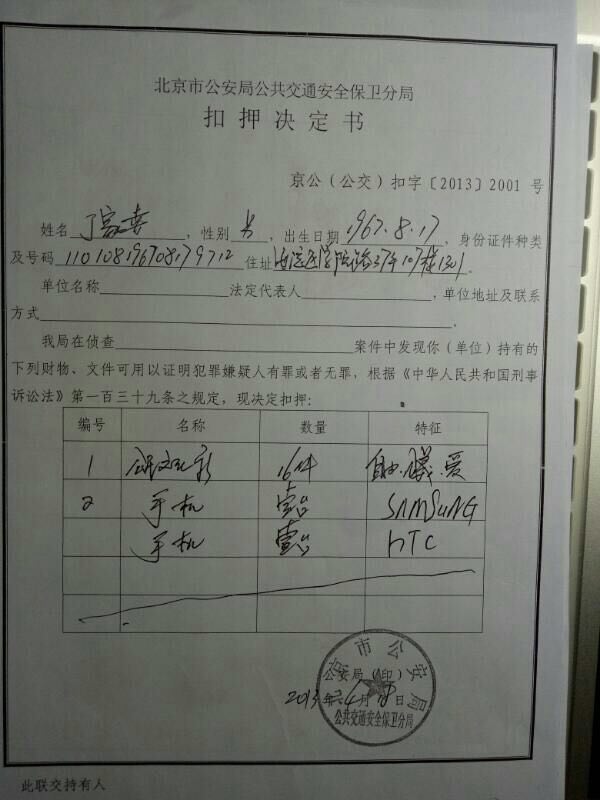 北京市公安局公共交通安全保卫分局
扣押决定书
京公（公交）扣字〔2013〕2001 号
姓名 丁家喜 ，性别 男 ，出生日期 1967.8.17 ，身份证件种类
及号码 110108196708179712 住址 海淀区学院路37号 。
单位名称 法定代表人 ，单位地址及联系
方式 。
我局在侦查 案件中发现你（单位）持有的
下列财物、文件可用以证明犯罪嫌疑人有罪或者无罪，根据《中华人民共和国刑事
诉讼法》第一百三十九条之规定，现决定扣押：
编号 名称 数量 特征
1 文化衫 16件 自由.义.爱
2 手机 壹台 SAMSUNG
手机 壹台 HTC
北京市公安局
公安局（印）
2013年 4月 日
公共交通安全保卫分局
此联交持有人